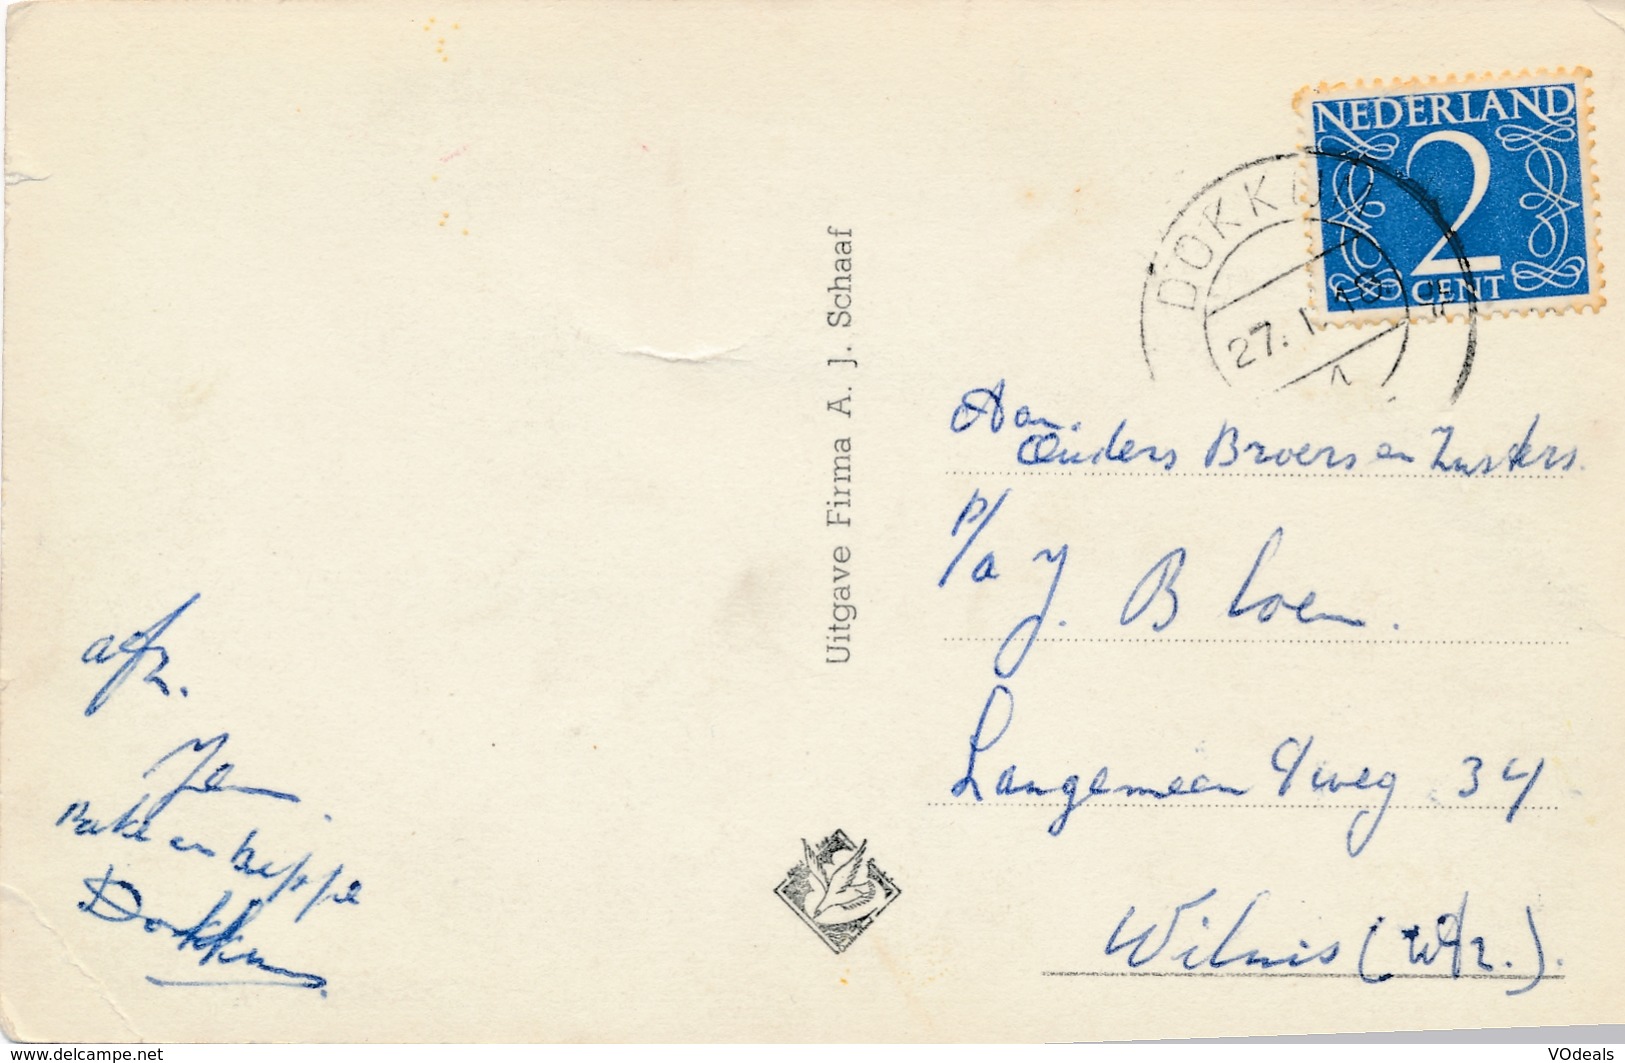 NEDERLAND
2
CENT
DOKKUM
27.1
Uitgave Firma A. J. Schaaf
Aan.
Ouders Broers en Zusters.
p/a J. Bloem.
Langemeen d/weg 34
Wilnis (Utr.).
afz.
Jen
en Beppe
Dokkum.
www.delcampe.net
VOdeals